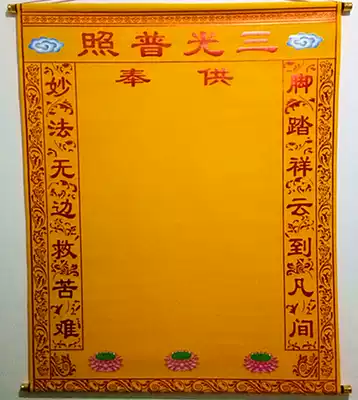 三光普照
供奉
脚踏祥云到凡间
妙法无边救苦难